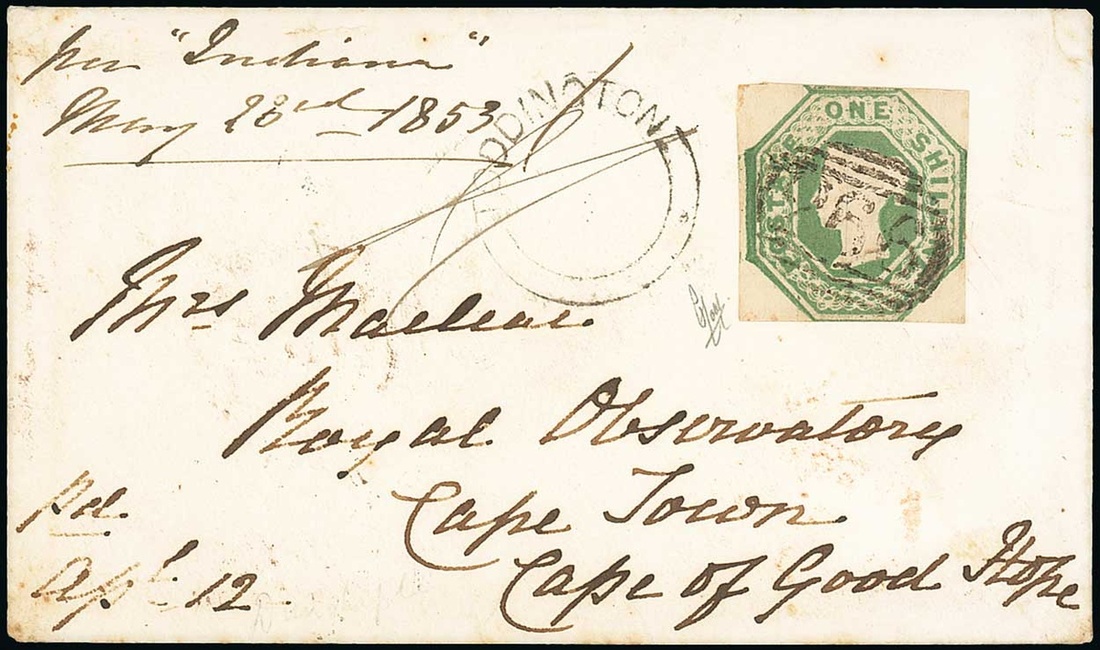 per "Indiana"
May 28th 1853
TEDDINGTON
POSTAGE ONE SHILLING
Mrs Maclear.
Royal Observatory
Cape Town
Cape of Good Hope
Rd.
Apl. 12